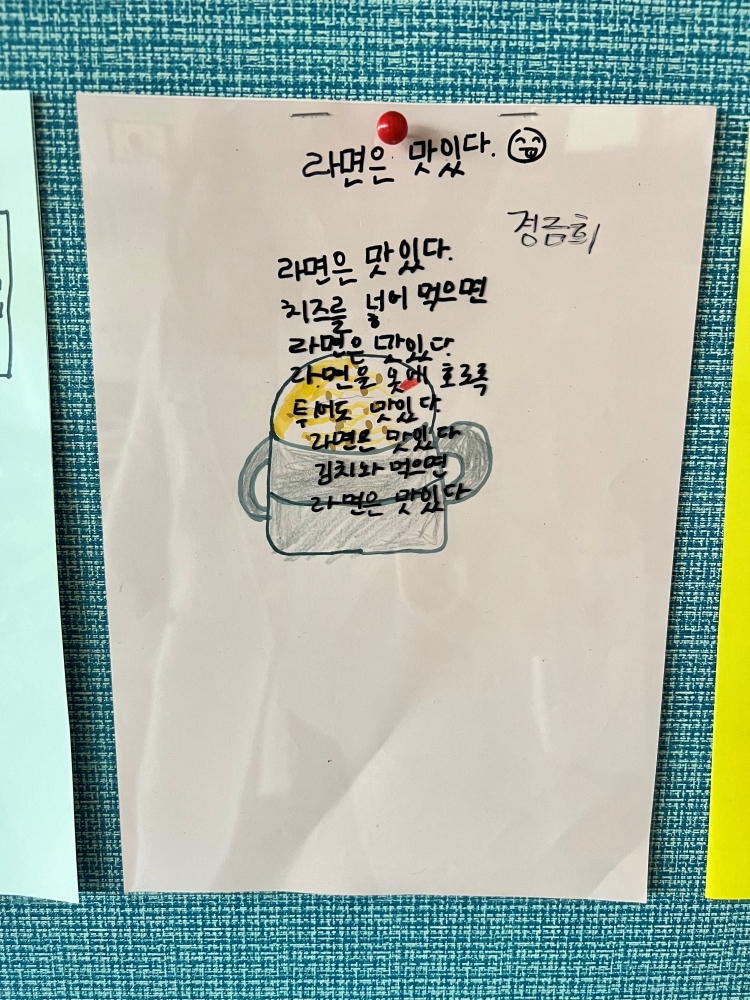 라면은 맛있다.
정금희
라면은 맛있다.
치즈를 넣어 먹으면
라면은 맛있다
라면을 옷에 호로록
튀어도 맛있다
라면은 맛있다
김치와 먹으면
라면은 맛있다